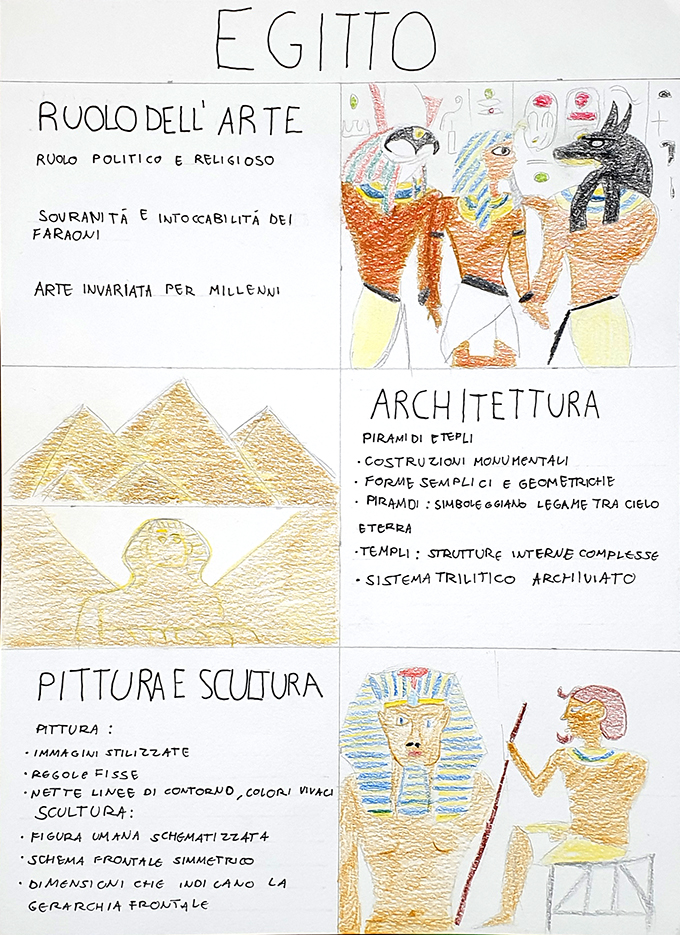 EGITTO
RUOLO DELL' ARTE
RUOLO POLITICO E RELIGIOSO
SOVRANITÁ E INTOCCABILITÁ DEI
FARAONI
ARTE INVARIATA PER MILLENNI
ARCHITETTURA
PIRAMIDI E TEPLI
• COSTRUZIONI MONUMENTALI
• FORME SEMPLICI E GEOMETRICHE
• PIRAMDI : SIMBOLEGGIANO LEGAME TRA CIELO
E TERRA
• TEMPLI : STRUTTURE INTERNE COMPLESSE
• SISTEMA TRILITICO ARCHIVIATO
PITTURA E SCULTURA
PITTURA :
• IMMAGINI STILIZZATE
• REGOLE FISSE
• NETTE LINEE DI CONTORNO, COLORI VIVACI
SCULTURA:
• FIGURA UMANA SCHEMATIZZATA
• SCHEMA FRONTALE SIMMETRICO
• DIMENSIONI CHE INDICANO LA
GERARCHIA FRONTALE